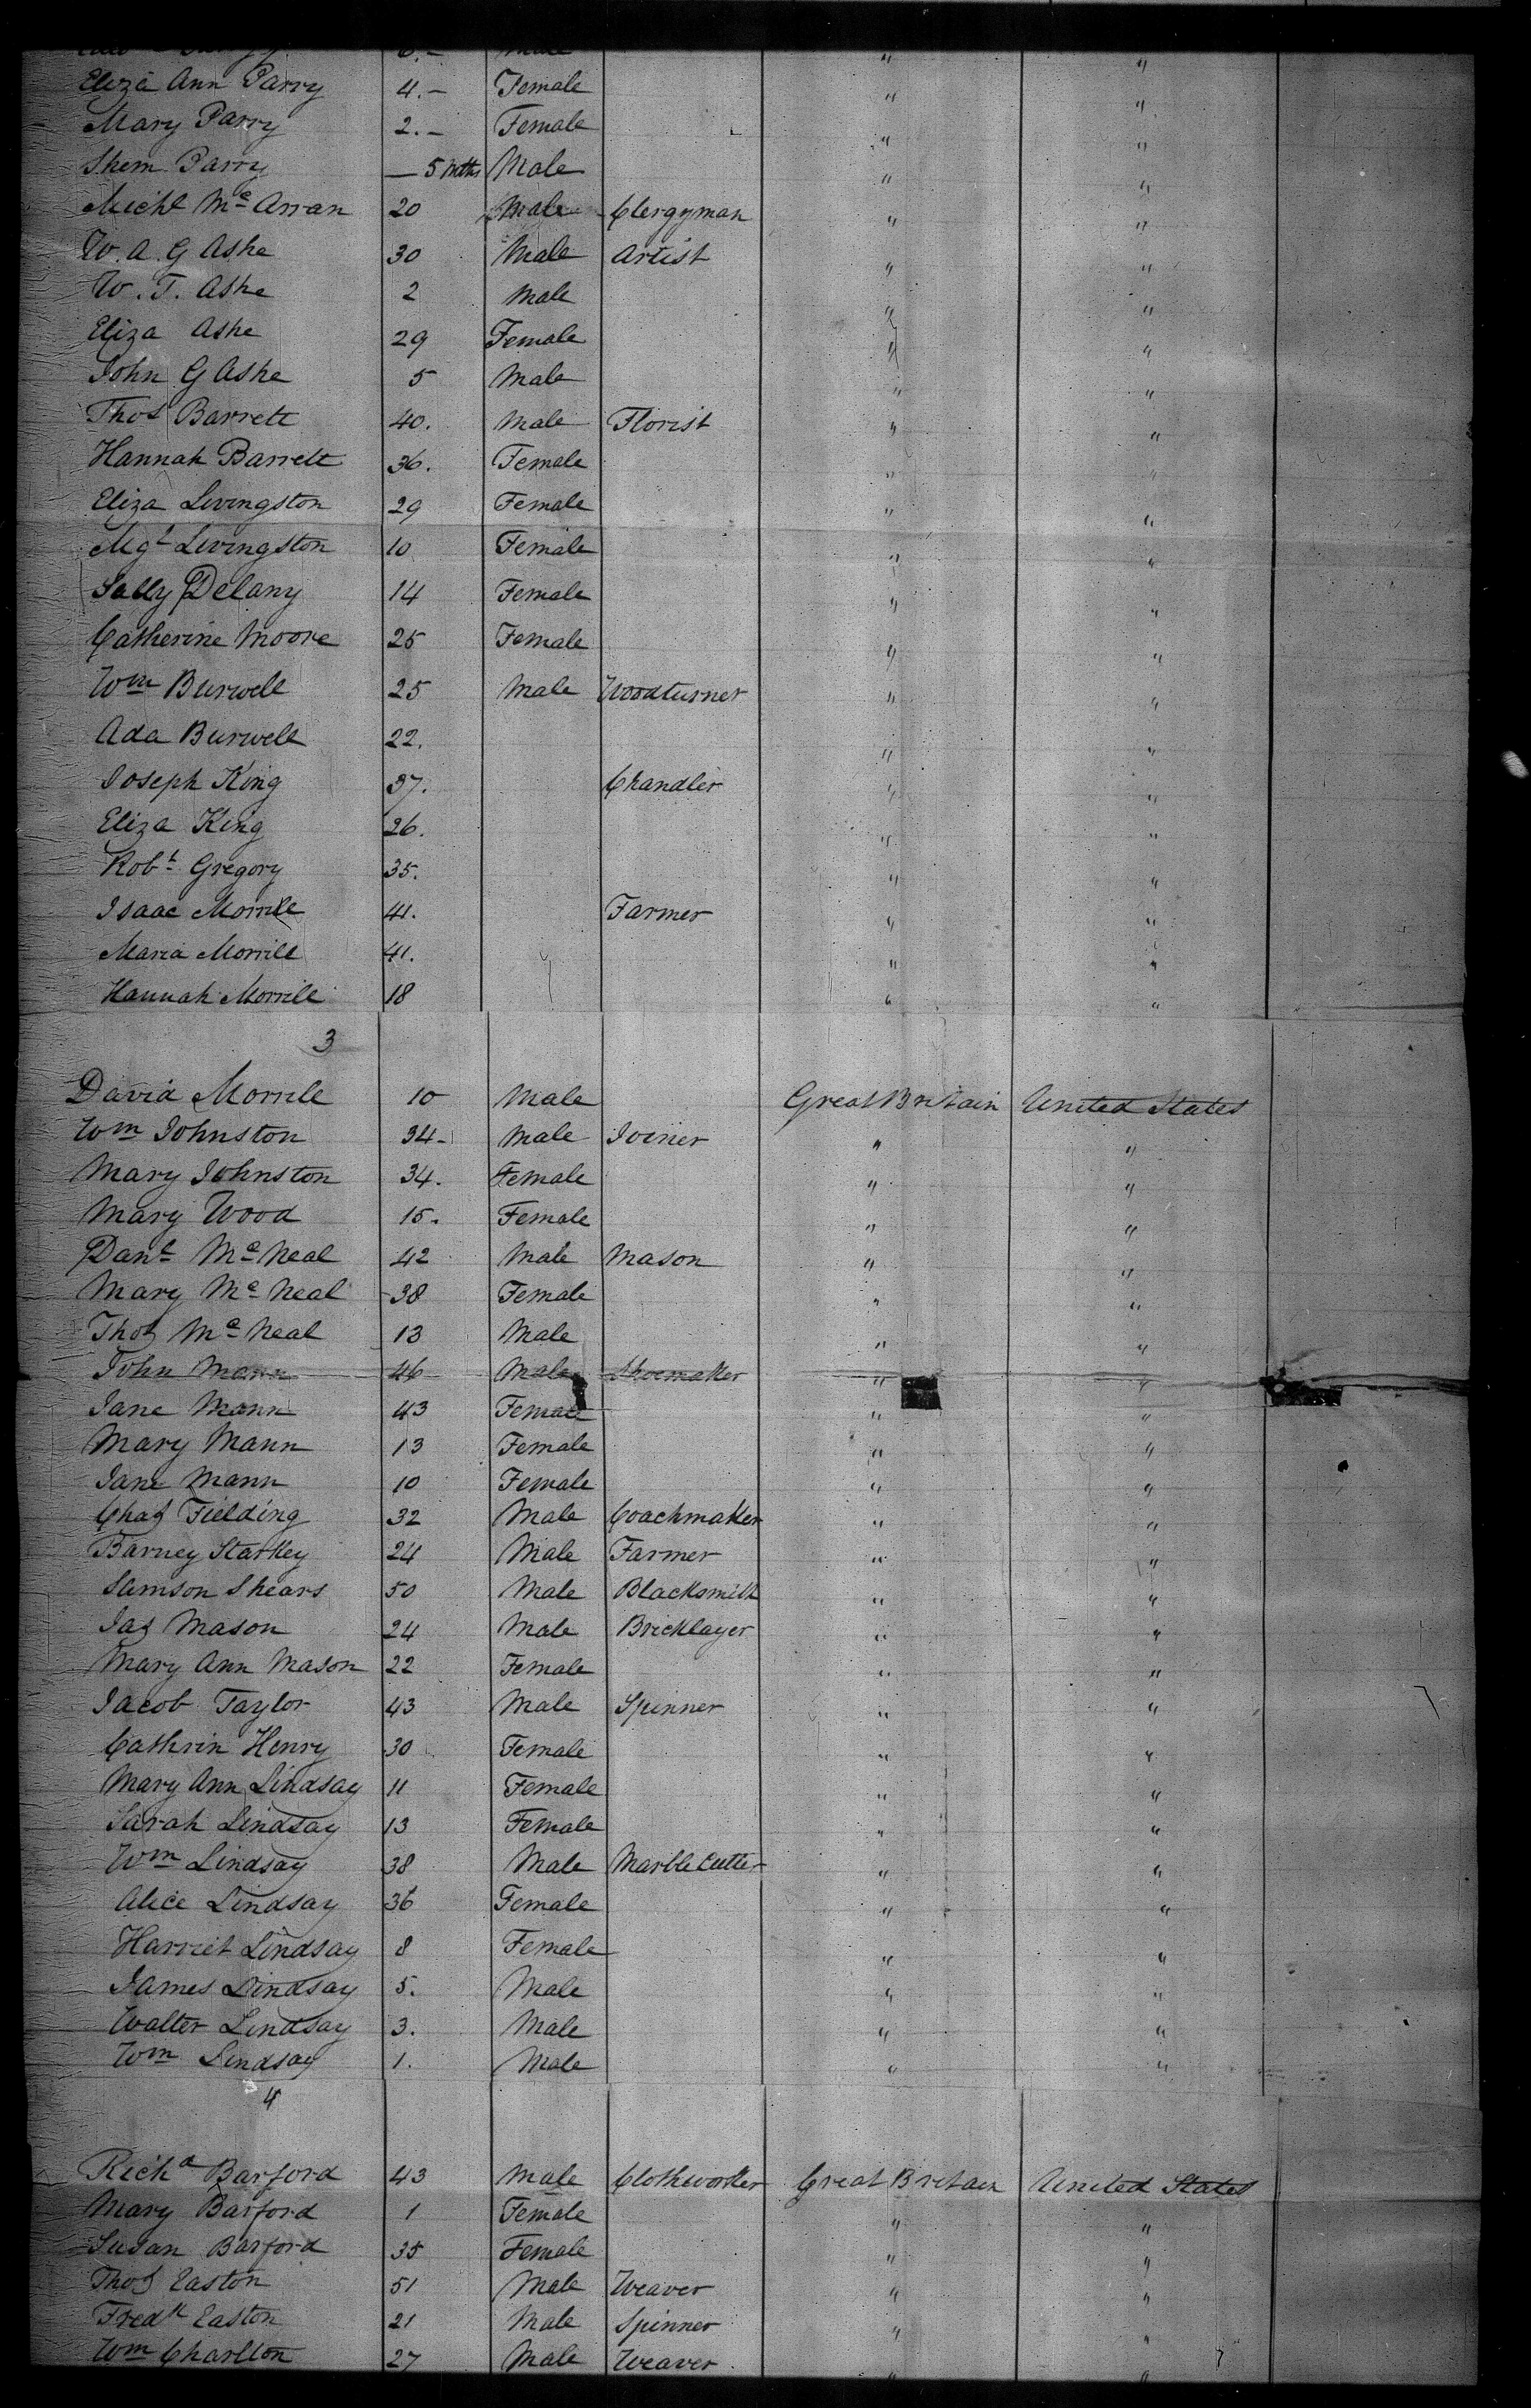 Eliza Ann Parry 4.- Female " "
Mary Parry 2.- Female " "
Shem Parry - 5 Mths Male " "
Michl Mc Arran 20 Male Clergyman " "
W. A. G Ashe 30 Male Artist " "
W. T. Ashe 2 Male " "
Eliza Ashe 29 Female " "
John G Ashe 5 Male " "
Thos Barrett 40. Male Florist " "
Hannah Barrett 36. Female " "
Eliza Livingston 29 Female " "
Mgt Livingston 10 Female " "
Sally Delany 14 Female " "
Catherine Moore 25 Female " "
Wm Burwell 25 Male Woodturner " "
Ada Burwell 22. " "
Joseph King 37. Chandler " "
Eliza King 26. " "
Robt Gregory 35. " "
Isaac Morrill 41. Farmer " "
Maria Morrill 41. " "
Hannah Morrill 18 " "
3
David Morrill 10 Male Great Britain United States
Wm Johnston 34- Male Joiner " "
Mary Johnston 34. Female " "
Mary Wood 15. Female " "
Danl Mc Neal 42 Male Mason " "
Mary Mc Neal 38 Female " "
Thos Mc Neal 13 Male " "
John Mann 46 Male Shoemaker " "
Jane Mann 43 Female " "
Mary Mann 13 Female " "
Jane Mann 10 Female " "
Chas Fielding 32 Male Coachmaker " "
Barney Starkey 24 Male Farmer " "
Samson Shears 50 Male Blacksmith " "
Jas Mason 24 Male Bricklayer " "
Mary Ann Mason 22 Female " "
Jacob Taylor 43 Male Spinner " "
Cathrin Henry 30 Female " "
Mary Ann Lindsay 11 Female " "
Sarah Lindsay 13 Female " "
Wm Lindsay 38 Male Marble Cutter " "
Alice Lindsay 36 Female " "
Harriet Lindsay 8 Female " "
James Lindsay 5. Male " "
Walter Lindsay 3. Male " "
Wm Lindsay 1. Male " "
4
Richd Barford 43 Male Clothworker Great Britain United States
Mary Barford 1 Female " "
Susan Barford 35 Female " "
Thos Easton 51 Male Weaver " "
Fredk Easton 21 Male Spinner " "
Wm Charlton 27 Male Weaver " "